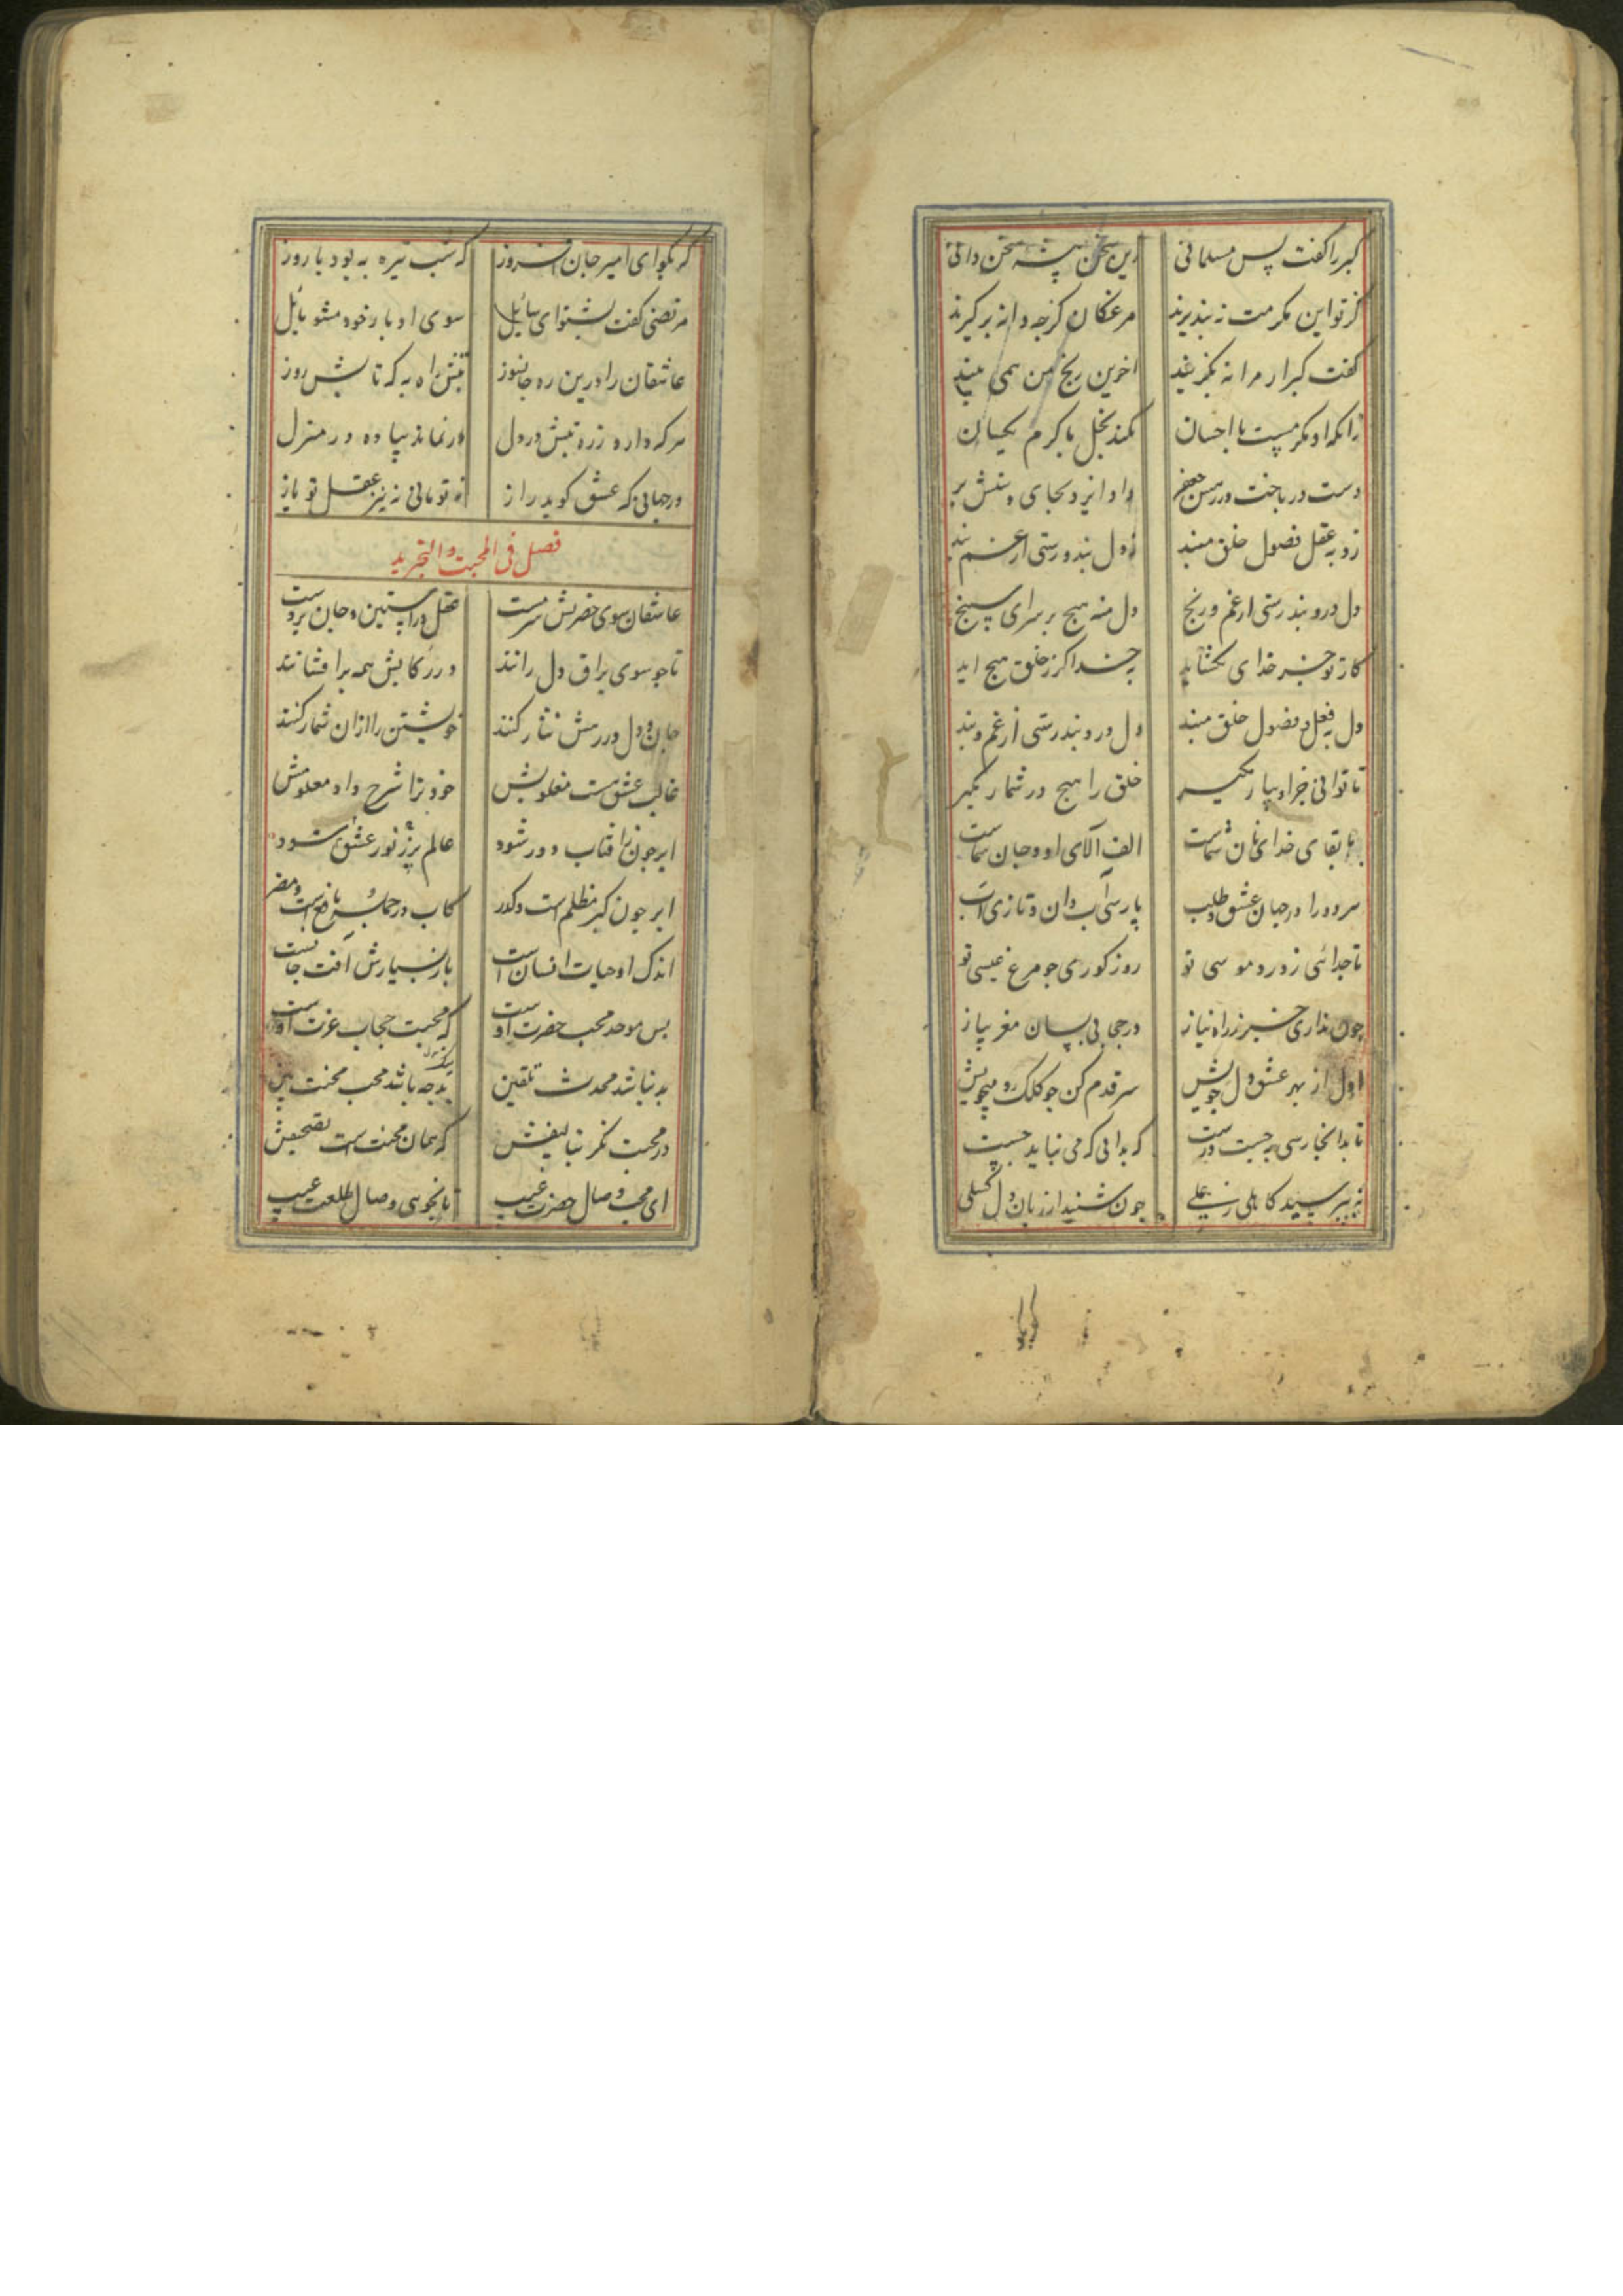 کبر را کفت پس مسلمانی زین سخن پیشه سخن دانی
کز تو این مکرمت نه بپذیرند مرغکان کرجه دانه برکیرند
کفت کبر ار مرا نه بکزیند اخر این رنج من همی بیند
زانکه او مکرمست با احسان نکند بخل با کرم یکسان
دست در باخت در رهش جعفر داد ایزد بجای دستش پر
زو به عقل فضول خلق مبند دل بند و رستی از غم بند
دل درو بند رستی از غم و رنج دل منه هیچ بر سرای سپنج
کار تو جز خدای نکشاید به خدا کر ز خلق هیچ اید
دل به فعل و فضول خلق مبند دل درو بند رستی از غم و بند
تا توانی جز او بیار مکیر خلق را هیچ در شمار مکیر
با بقای خدای نان شماست الف آلای او و جان شماست
هر دو را در جهان عشق و طلب پارسی باب دان و تازی اب
تا جدائی ز درد موسی تو روز کوری جو مرغ عیسی تو
چون نداری خبر ز راه نیاز در حجابی بسان مغز پیاز
اول از بهر عشق دل جویش سر قدم کن جو کلک و میجویش
تا بدانجا رسی جست درست که بدانی که می نباید جست
پیر پرسید کاهلی ز علی چون شنید از زبان دل کسلی
که بکو ای امیر جان افروز که شب تیره به بود یا روز
مرتضی کفت بشنو ای سائل سوی ادبار خود مشو مایل
عاشقان را درین ره جانسوز تبش راه به که تابش روز
هر که دارد ز ره تبش در دل در نماند پیاده در منزل
در جهانی که عشق کوید راز نه تو مانی نه نیز عقل تو باز
فصل فی المحبت والتجرید
عاشقان سوی حضرتش سرمست عقل در استین و جان بر دست
تا جو سوی براق دل رانند در رکابش همه بر افشانند
جان و دل در رهش نثار کنند خویشتن را از ان شمار کنند
غالب عشق هست مغلوبش خود ترا شرح داد معلومش
ابر جون ز افتاب دور شود عالم پر ز نور عشق شود
ابر جون کبر مظلم است و کدر کاب در جمله نافع است و مضر
اندک او حیات انسان است باز بسیارش آفت جانست
بس موحد محب حضرت اوست که محبت حجاب عزت اوست
بد نباشد محدث تلقین بد جه باشد محب محنت بین
در محبت نکر بتالیفش که همان محنت است تصحیفش
ای محب وصال حضرت غیب تا نجوئی وصال طلعت عیب